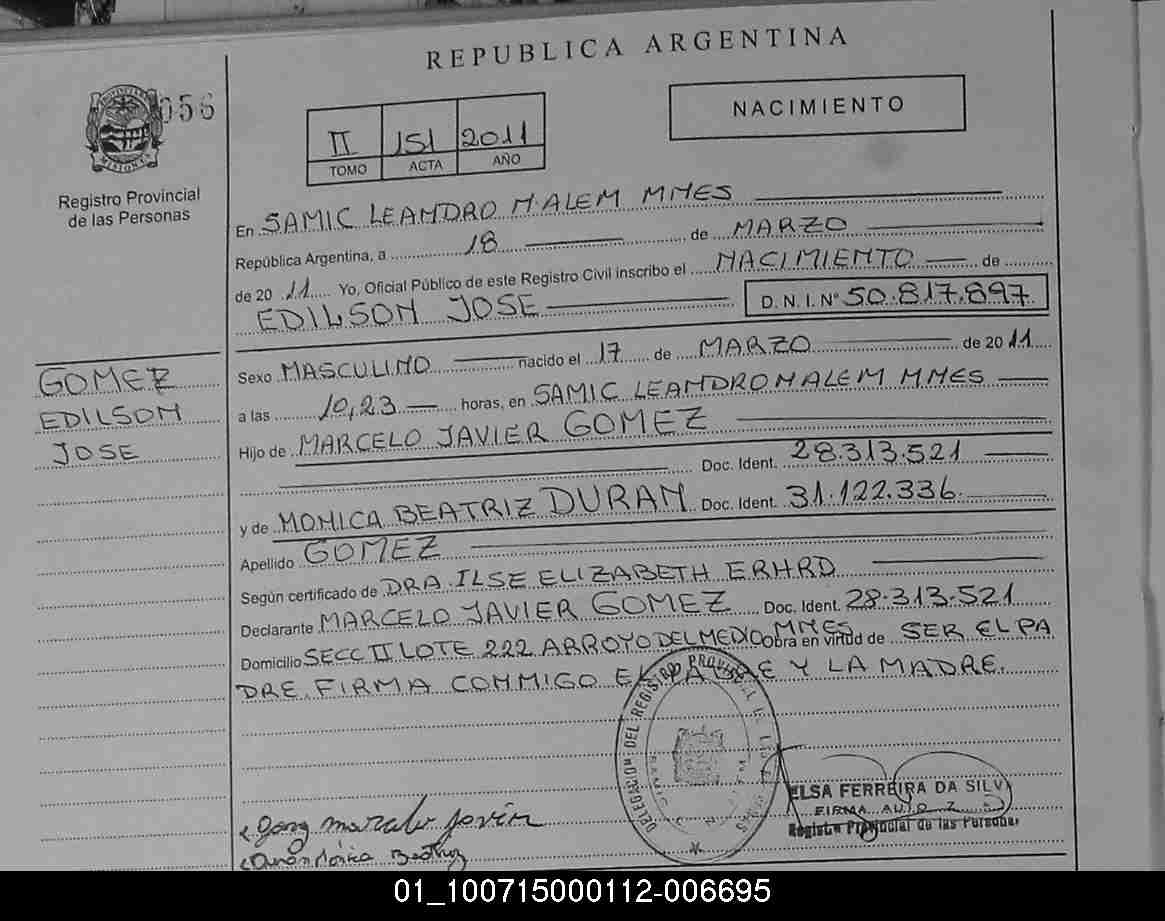 REPUBLICA ARGENTINA
056
PROVINCIA DE MISIONES
Registro Provincial
de las Personas
II 151 2011
TOMO ACTA AÑO
NACIMIENTO
En SAMIC LEANDRO N.ALEM MNES
República Argentina, a 18 de MARZO
de 20 11 Yo, Oficial Público de este Registro Civil inscribo el NACIMIENTO de
EDILSON JOSE D.N.I.Nº 50.817.897
GOMEZ
EDILSON
JOSE
Sexo MASCULINO nacido el 17 de MARZO de 20 11
a las 10,23 horas, en SAMIC LEANDRO N ALEM MNES
Hijo de MARCELO JAVIER GOMEZ
Doc. Ident. 28.313.521
y de MONICA BEATRIZ DURAN Doc. Ident. 31.122.336
Apellido GOMEZ
Según certificado de DRA. ILSE ELIZABETH ERHRD
Declarante MARCELO JAVIER GOMEZ Doc. Ident. 28.313.521
Domicilio SECC II LOTE 222 ARROYO DEL MEDIO MNES Obra en virtud de SER EL PA
DRE. FIRMA CONMIGO EL PADRE Y LA MADRE.
DELEGACION DEL REGISTRO PROVINCIAL DE LAS PERSONAS
ELSA FERREIRA DA SILVA
FIRMA
Registro Provincial de las Personas
Beatriz
01_100715000112-006695